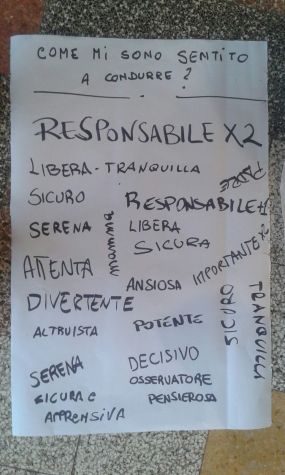 COME MI SONO SENTITO
A CONDURRE ?
RESPONSABILE X2
LIBERA - TRANQUILLA
PADRE
SICURO
RESPONSABILE
SERENA
mamma
LIBERA
SICURA
IMPORTANTE x2
ATTENTA
ANSIOSA
DIVERTENTE
SICURO
TRANQUILLA
ALTRUISTA
POTENTE
SERENA
DECISIVO
OSSERVATORE
SICURA E
PENSIEROSA
APPRENSIVA